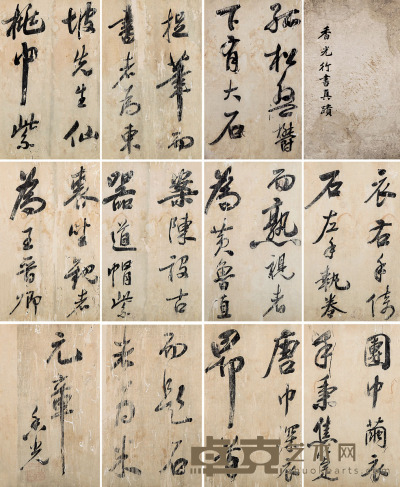 香光行書真蹟
孤松盤鬱
下有大石
捉筆而
書者為東
坡先生仙
桃巾紫
衣右手倚
石左手執卷
而熟視者
為黃魯直
案陳設古
器道帽紫
裘坐觀者
為王晉卿
團巾繭衣
手秉蕉箑
唐巾深衣
昂首
而題石
者為米
元章
香光
卓克艺术网